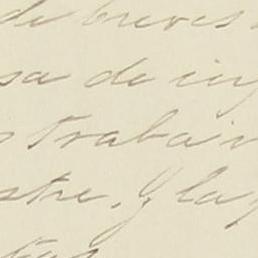 de breves
sa de in
s traba
stre. y la